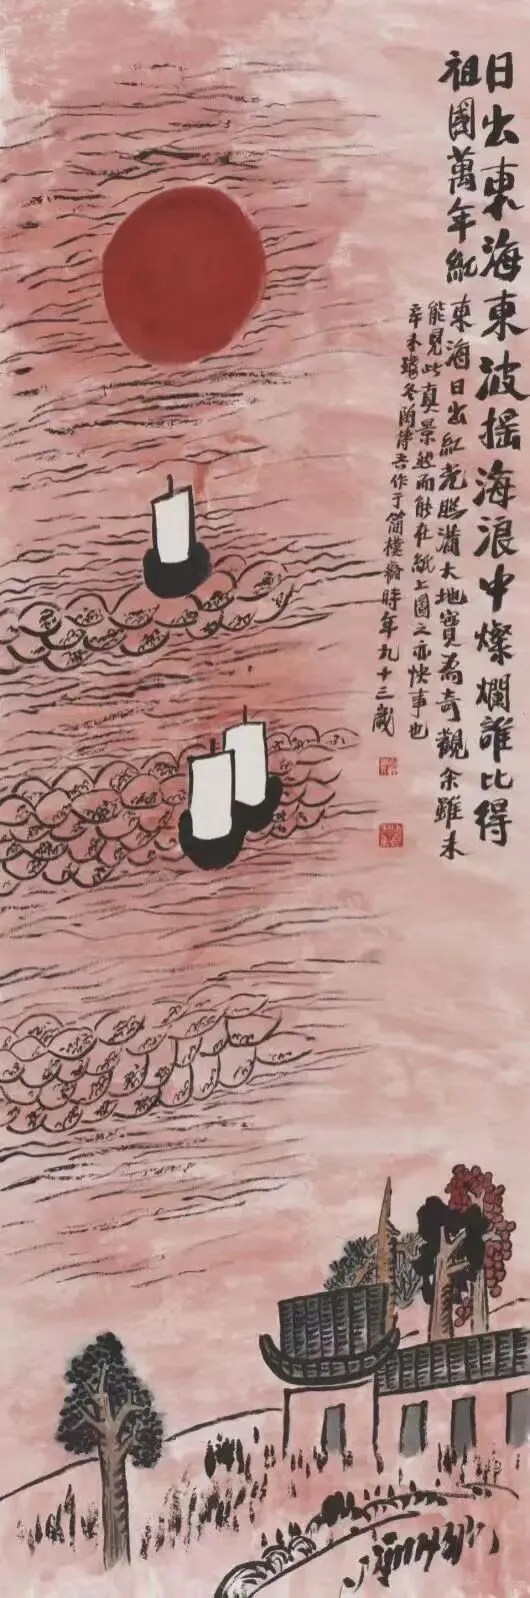 日出東海東波搖海浪中燦爛誰比得
祖國萬年紅
東海日出紅光照滿大地實為奇觀余雖未
能見此真景然而能在紙上圖之亦快事也
辛未 冬 作于簡樸齋時年九十三歲